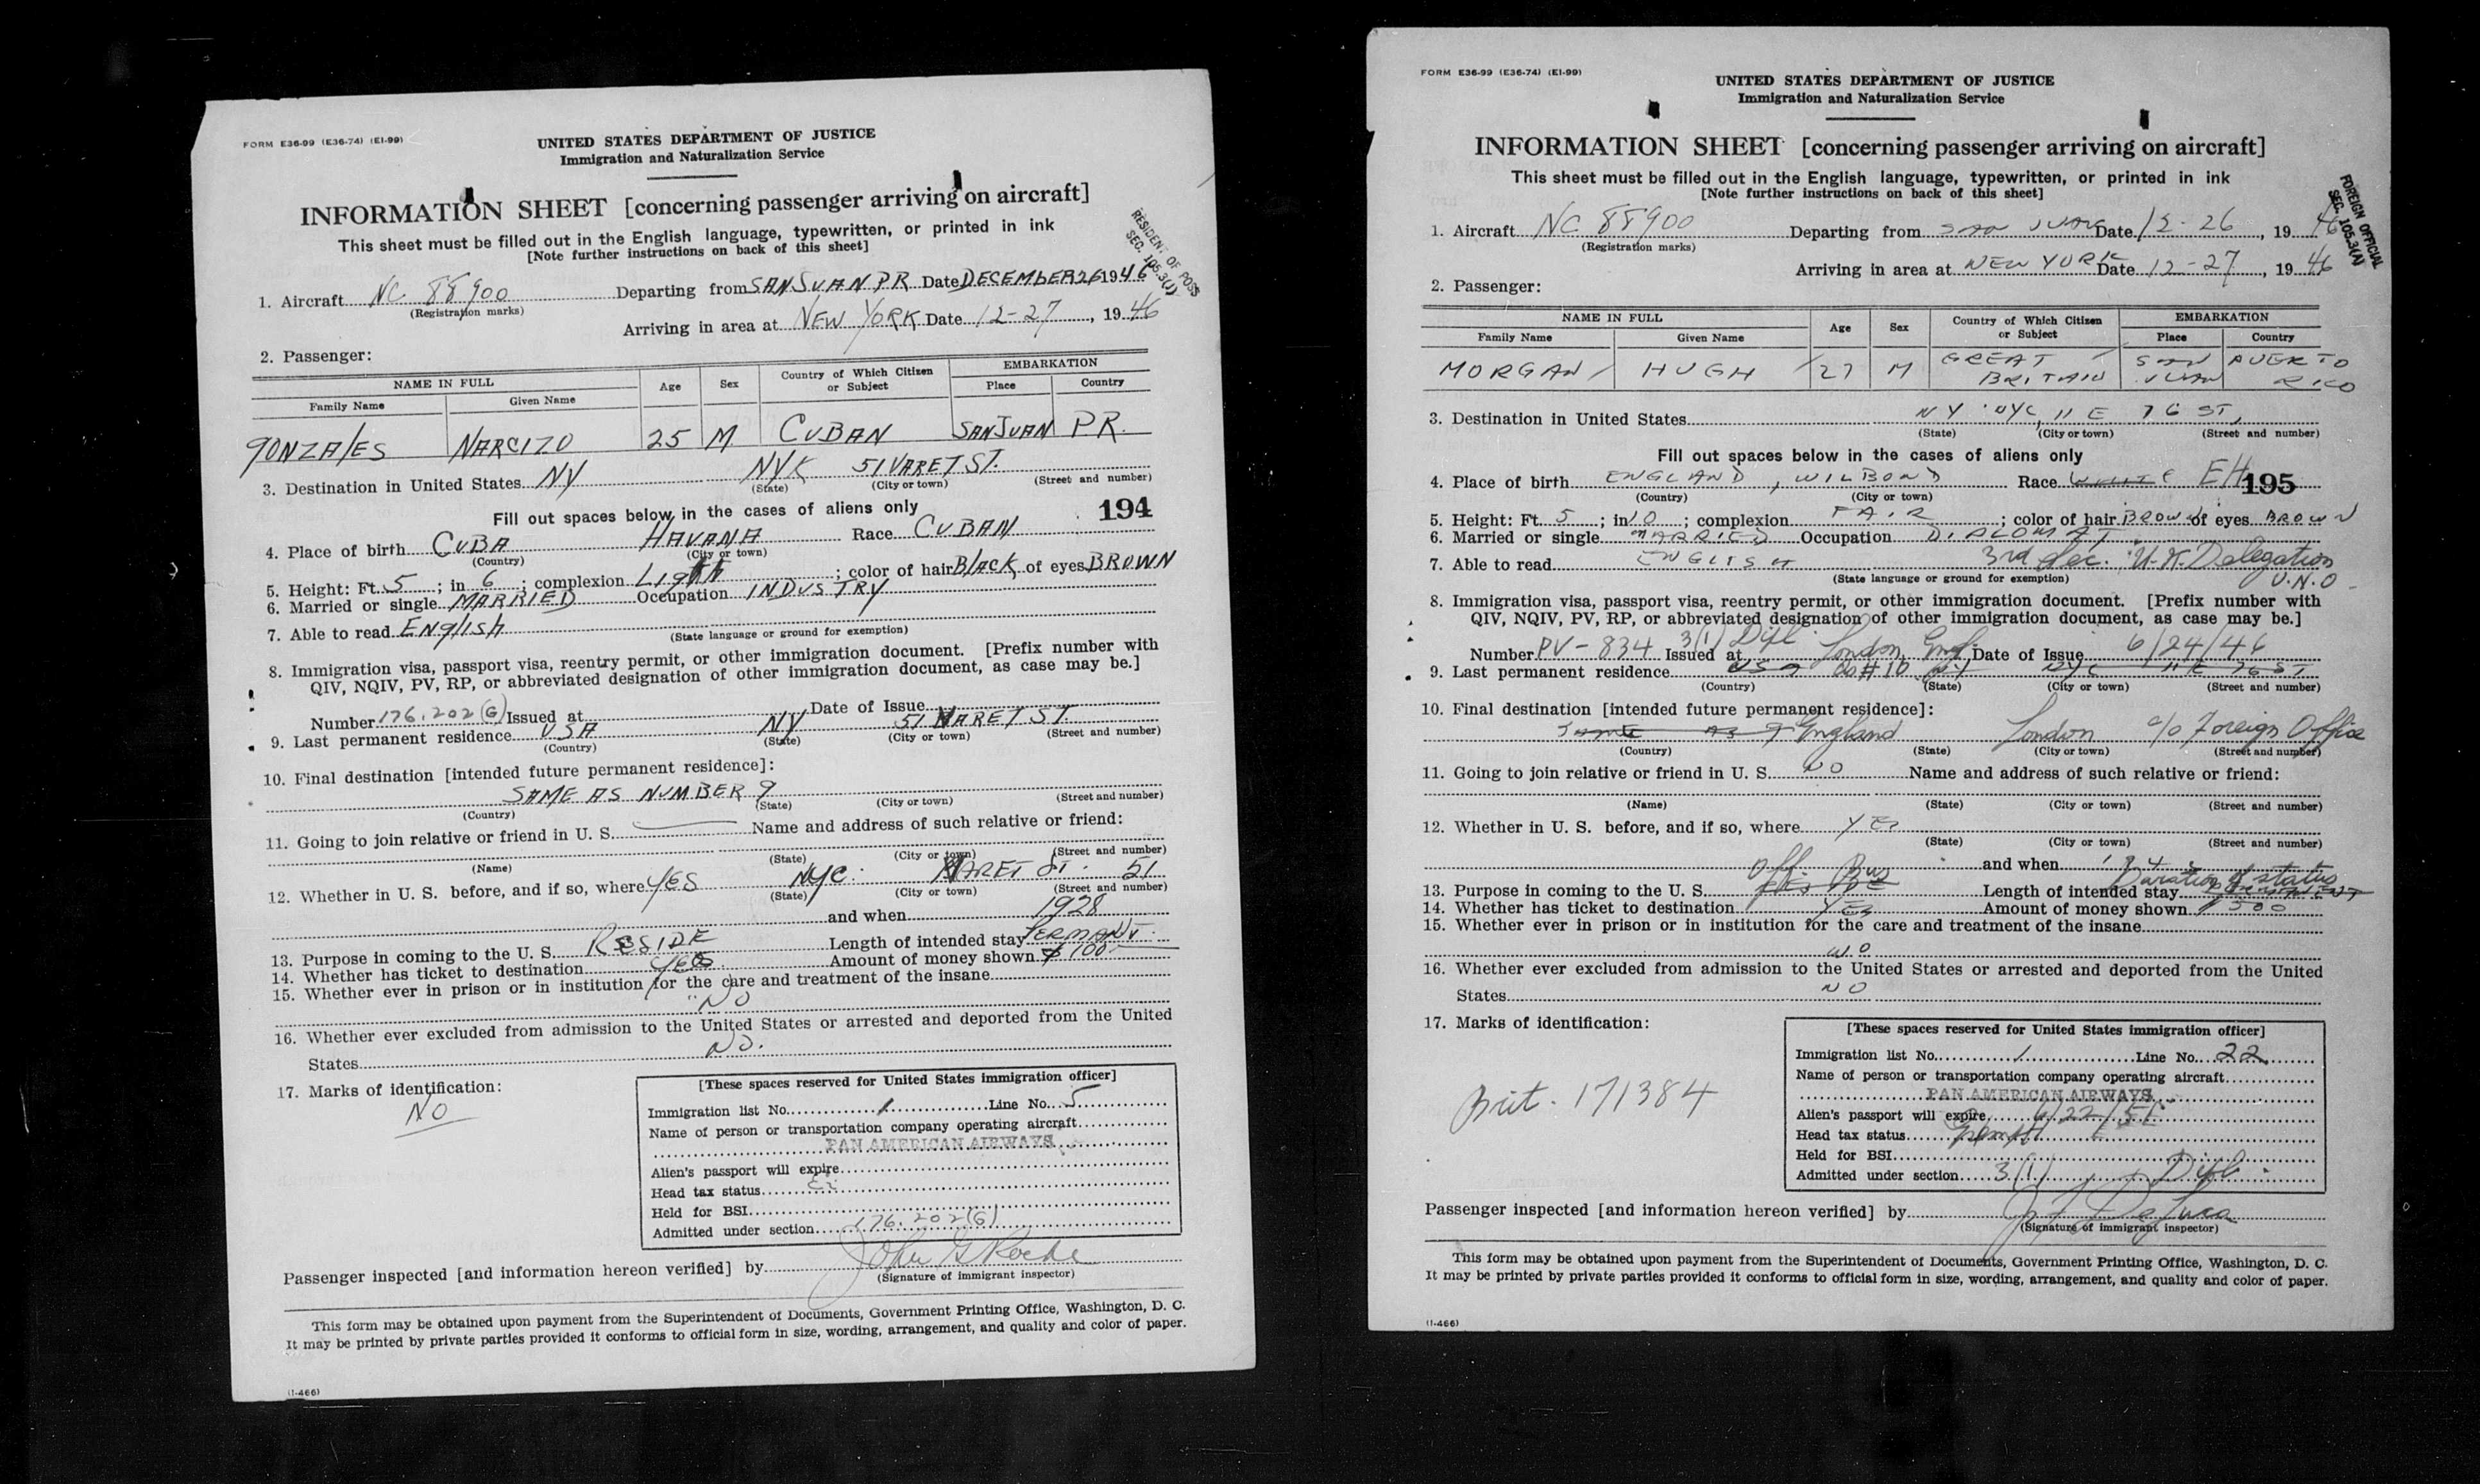 FORM E36-99 (E36-74) (E1-99)
UNITED STATES DEPARTMENT OF JUSTICE
Immigration and Naturalization Service
INFORMATION SHEET [concerning passenger arriving on aircraft]
This sheet must be filled out in the English language, typewritten, or printed in ink
[Note further instructions on back of this sheet]
RESIDENT OF POSS
SEC. 105.3(J)
1. Aircraft NC 88900 Departing from SAN JUAN PR Date DECEMBER 26 1946
(Registration marks)
Arriving in area at NEW YORK Date 12-27, 1946
2. Passenger:
NAME IN FULL Age Sex Country of Which Citizen or Subject EMBARKATION
Family Name Given Name Place Country
GONZAlES NARCIZO 25 M CUBAN SAN JUAN PR.
3. Destination in United States NY NYK 51 VARET ST.
(State) (City or town) (Street and number)
Fill out spaces below in the cases of aliens only 194
4. Place of birth CUBA HAVANA Race CUBAN
(Country) (City or town)
5. Height: Ft. 5; in 6; complexion Light; color of hair BlACK of eyes BROWN
6. Married or single MARRIED Occupation INDUSTRY
7. Able to read ENglISH
(State language or ground for exemption)
8. Immigration visa, passport visa, reentry permit, or other immigration document. [Prefix number with
QIV, NQIV, PV, RP, or abbreviated designation of other immigration document, as case may be.]
Number 176.202(G) Issued at Date of Issue
9. Last permanent residence USA NY 51 VARET ST.
(Country) (State) (City or town) (Street and number)
10. Final destination [intended future permanent residence]:
SAME AS NUMBER 9
(Country) (State) (City or town) (Street and number)
11. Going to join relative or friend in U. S. Name and address of such relative or friend:
(Name) (State) (City or town) (Street and number)
12. Whether in U. S. before, and if so, where YES NYC. VARET ST. 51
(State) (City or town) (Street and number)
and when 1928
13. Purpose in coming to the U. S. RESIDE Length of intended stay PERMANT.
14. Whether has ticket to destination YES Amount of money shown $100-
15. Whether ever in prison or in institution for the care and treatment of the insane
NO
16. Whether ever excluded from admission to the United States or arrested and deported from the United
States NO.
17. Marks of identification:
NO
[These spaces reserved for United States immigration officer]
Immigration list No. 1 Line No. 5
Name of person or transportation company operating aircraft
PAN AMERICAN AIRWAYS
Alien's passport will expire
Head tax status Ex
Held for BSI
Admitted under section 176.202(G)
Passenger inspected [and information hereon verified] by John G Roche
(Signature of immigrant inspector)
This form may be obtained upon payment from the Superintendent of Documents, Government Printing Office, Washington, D. C.
It may be printed by private parties provided it conforms to official form in size, wording, arrangement, and quality and color of paper.
(I-466)
FORM E36-99 (E36-74) (E1-99)
UNITED STATES DEPARTMENT OF JUSTICE
Immigration and Naturalization Service
INFORMATION SHEET [concerning passenger arriving on aircraft]
This sheet must be filled out in the English language, typewritten, or printed in ink
[Note further instructions on back of this sheet]
FOREIGN OFFICIAL
SEC. 105.3(A)
1. Aircraft NC 88900 Departing from SAN JUAN Date 12-26, 1946
(Registration marks)
Arriving in area at NEW YORK Date 12-27, 1946
2. Passenger:
NAME IN FULL Age Sex Country of Which Citizen or Subject EMBARKATION
Family Name Given Name Place Country
MORGAN HUGH 27 M GREAT BRITAIN SAN JUAN PUERTO RICO
3. Destination in United States NY NYC, 11 E 76 ST,
(State) (City or town) (Street and number)
Fill out spaces below in the cases of aliens only
4. Place of birth ENGLAND, WILBOND Race WHITE EH 195
(Country) (City or town)
5. Height: Ft. 5; in 10; complexion FAIR; color of hair BROWN of eyes BROWN
6. Married or single MARRIED Occupation DIPLOMAT
7. Able to read ENGLISH 3rd Sec. U.K. Delegation
(State language or ground for exemption) U.N.O.
8. Immigration visa, passport visa, reentry permit, or other immigration document. [Prefix number with
QIV, NQIV, PV, RP, or abbreviated designation of other immigration document, as case may be.]
Number PV-834 3(1) Dipl. Issued at London Eng. Date of Issue 6/24/46
9. Last permanent residence USA NY NYC 11 E 76 ST
(Country) (State) (City or town) (Street and number)
10. Final destination [intended future permanent residence]:
SAME AS 9 England London c/o Foreign Office
(Country) (State) (City or town) (Street and number)
11. Going to join relative or friend in U. S. NO Name and address of such relative or friend:
(Name) (State) (City or town) (Street and number)
12. Whether in U. S. before, and if so, where YES
(State) (City or town) (Street and number)
and when
13. Purpose in coming to the U. S. Off. Bus Length of intended stay Duration of status
14. Whether has ticket to destination YES Amount of money shown $500
15. Whether ever in prison or in institution for the care and treatment of the insane
NO
16. Whether ever excluded from admission to the United States or arrested and deported from the United
States NO
17. Marks of identification:
Brit. 171384
[These spaces reserved for United States immigration officer]
Immigration list No. 1 Line No. 22
Name of person or transportation company operating aircraft
PAN AMERICAN AIRWAYS
Alien's passport will expire 6/22/51
Head tax status Exempt
Held for BSI
Admitted under section 3(1) Dipl.
Passenger inspected [and information hereon verified] by
(Signature of immigrant inspector)
This form may be obtained upon payment from the Superintendent of Documents, Government Printing Office, Washington, D. C.
It may be printed by private parties provided it conforms to official form in size, wording, arrangement, and quality and color of paper.
(I-466)